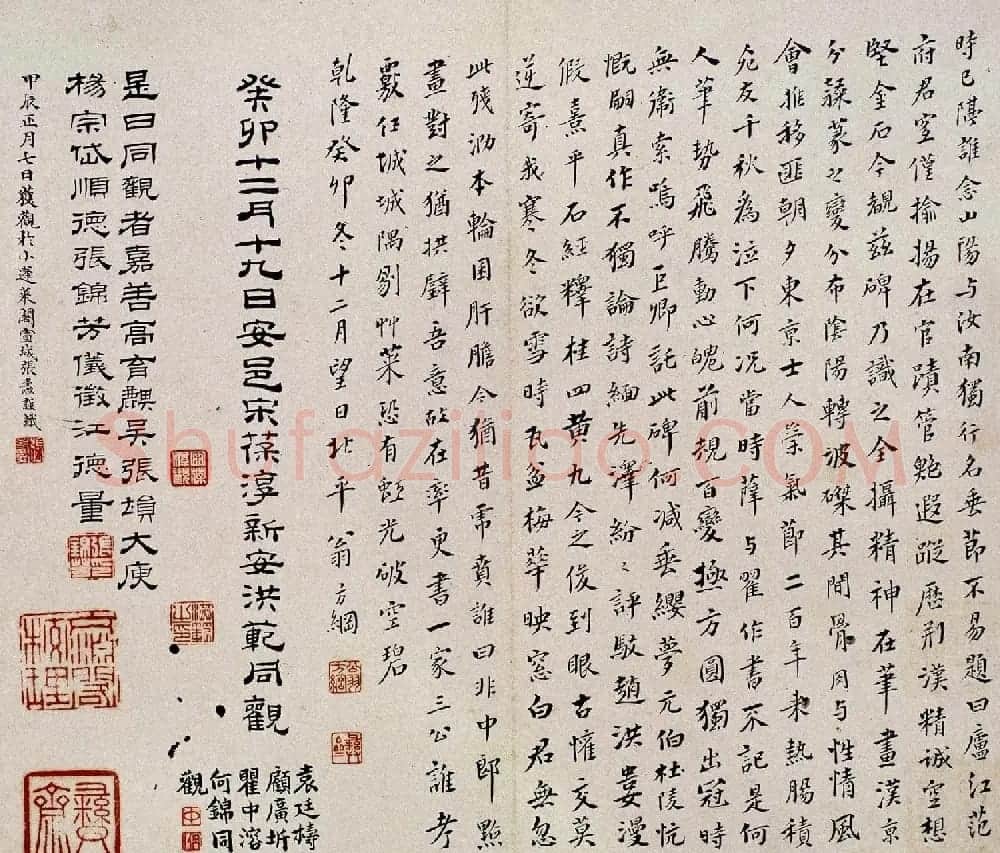 時已隔誰念山陽与汝南獨行名垂節不易題曰廬江范
府君豈僅揄揚在官蹟管鮑遐蹤歷荊漢精誠空想
堅金石今觀茲碑乃識之全攝精神在筆畫漢京
分隸篆之變分布陰陽轉波磔其間骨月与性情風
會推移匪朝夕東京士人崇氣節二百年来熱腸積
死友千秋為泣下何况當時蔡与翟作書不記是何
人筆勢飛騰動心魄前規百變極方圓獨出冠時
無衛索嗚呼巨卿託此碑何减垂纓夢元伯杜陵忼
慨嗣真作不獨論詩緬先澤紛〻評駮趙洪婁漫
假熹平石經釋桂四黄九今之俊到眼古懽交莫
逆寄我寒冬欲雪時瓦盆梅華映窓白君無忽
此殘泐本輪囷肝膽今猶昔帋賁誰曰非中郎點
畫對之猶拱璧吾意故在率更書一家三公誰考
覈任城城隅剔艸萊恐有虹光破空碧
乾隆癸卯冬十二月望日北平翁方綱
癸卯十二月十九日安邑宋葆淳新安洪範同觀
是日同觀者嘉善高育麒吳張塤大庾
楊宗岱順德張錦芳儀徵江德量
甲辰正月七日獲觀於小蓬萊閣雪
袁廷檮
顧廣圻
瞿中溶
何錦同
觀
Shufaziliao.COM